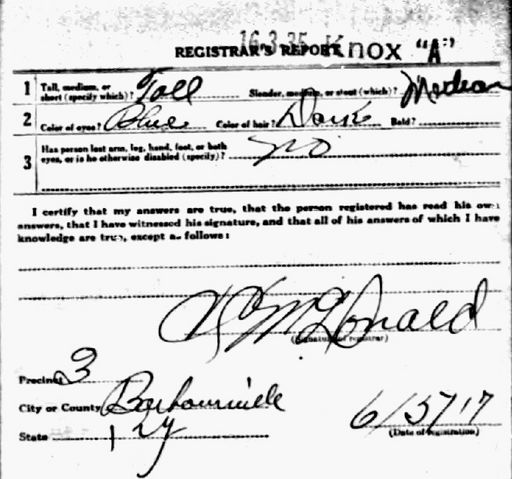 16 3 35 Knox "A"
REGISTRAR'S REPORT
1 Tall, medium, or short (specify which)? Tall Slender, medium, or stout (which)? Median
2 Color of eyes? Blue Color of hair? Dark Bald?
3 Has person lost arm, leg, hand, foot, or both eyes, or is he otherwise disabled (specify)? no
I certify that my answers are true, that the person registered has read his own
answers, that I have witnessed his signature, and that all of his answers of which I have
knowledge are true, except as follows:
McDonald
(Signature of registrar)
Precinct 3
City or County Barbourville
State Ky
6/5/17
(Date of registration)